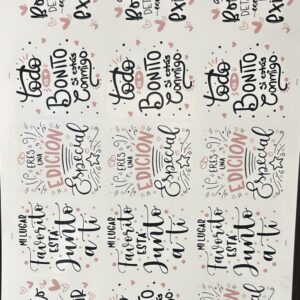 todo
es
BONITO
si estás
conmigo
todo
es
BONITO
si estás
conmigo
todo
es
BONITO
si estás
conmigo
ERES
UNA
EDICIÓN
Especial
ERES
UNA
EDICIÓN
Especial
ERES
UNA
EDICIÓN
Especial
MI LUGAR
Favorito
ESTÁ
Junto
a ti
MI LUGAR
Favorito
ESTÁ
Junto
a ti
MI LUGAR
Favorito
ESTÁ
Junto
a ti